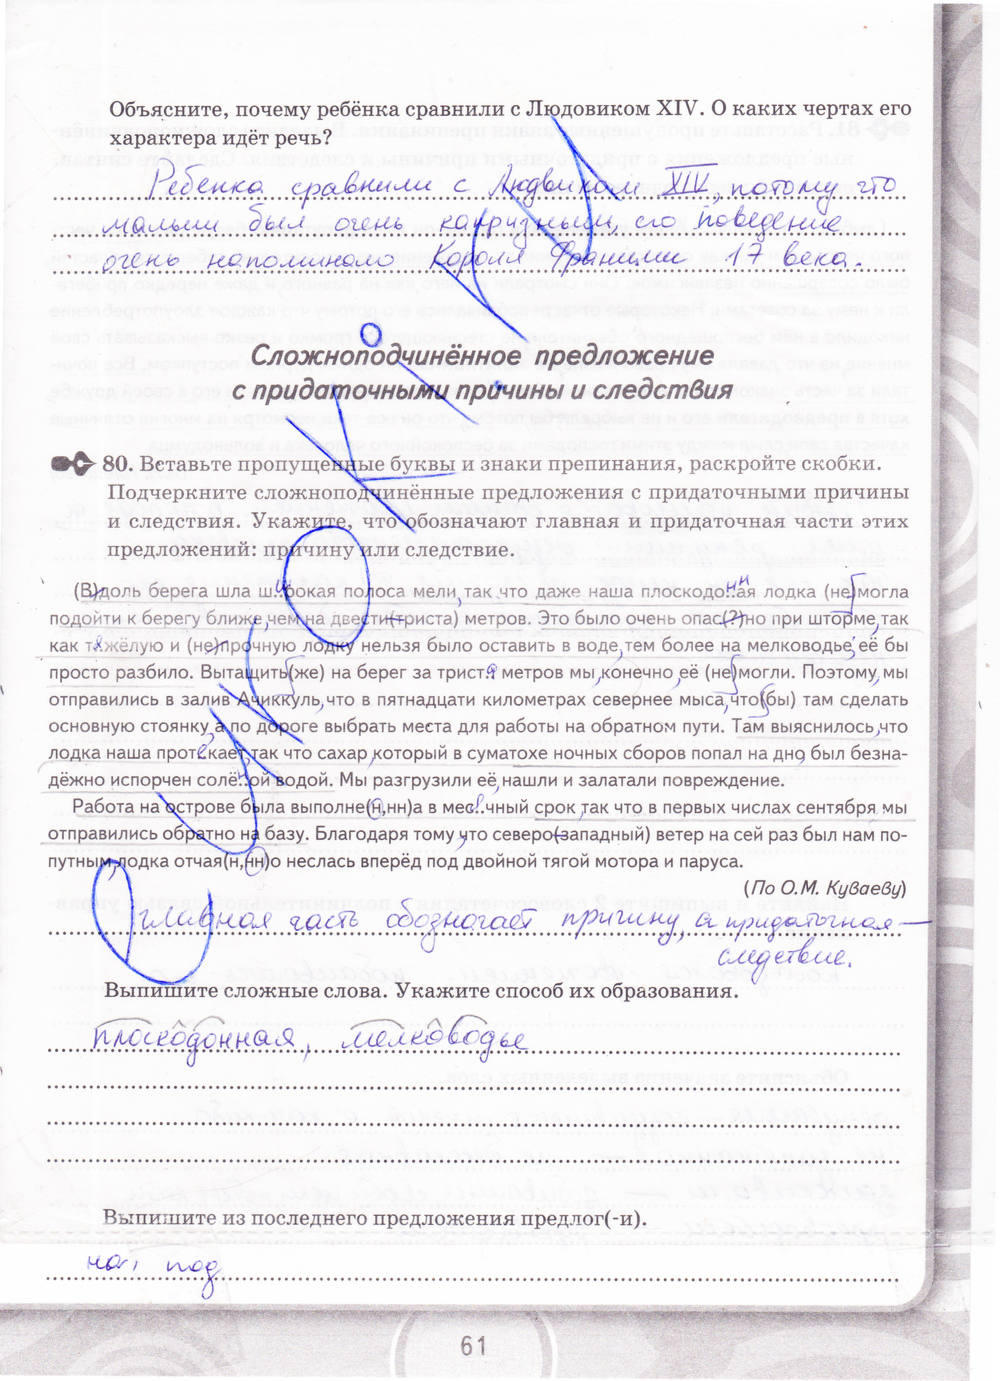 Объясните, почему ребёнка сравнили с Людовиком XIV. О каких чертах его
характера идёт речь?
Ребенка сравнили с Людвиком XIV, потому что
малыш был очень капризным, его поведение
очень напоминало Короля Франции 17 века.
Сложноподчинённое предложение
с придаточными причины и следствия
80. Вставьте пропущенные буквы и знаки препинания, раскройте скобки.
Подчеркните сложноподчинённые предложения с придаточными причины
и следствия. Укажите, что обозначают главная и придаточная части этих
предложений: причину или следствие.
(В)доль берега шла ш..рокая полоса мели, так что даже наша плоскодо..ая лодка (не)могла
подойти к берегу ближе, чем на двести(триста) метров. Это было очень опас(?)но при шторме, так
как тяжёлую и (не)прочную лодку нельзя было оставить в воде, тем более на мелководье, её бы
просто разбило. Вытащить(же) на берег за триста метров мы, конечно, её (не)могли. Поэтому, мы
отправились в залив Ачиккуль, что в пятнадцати километрах севернее мыса, что(бы) там сделать
основную стоянку, а по дороге выбрать места для работы на обратном пути. Там выяснилось, что
лодка наша протекает, так что сахар, который в суматохе ночных сборов попал на дно, был безна-
дёжно испорчен солё..ой водой. Мы разгрузили её, нашли и залатали повреждение.
Работа на острове была выполне(н,нн)а в мес..чный срок, так что в первых числах сентября мы
отправились обратно на базу. Благодаря тому, что северо(западный) ветер на сей раз был нам по-
путным, лодка отчая(н,нн)о неслась вперёд под двойной тягой мотора и паруса.
(По О.М. Куваеву)
Главная часть обозначает причину, а придаточная —
следствие.
Выпишите сложные слова. Укажите способ их образования.
плоскодонная, мелководье
Выпишите из последнего предложения предлог(-и).
на, под
61